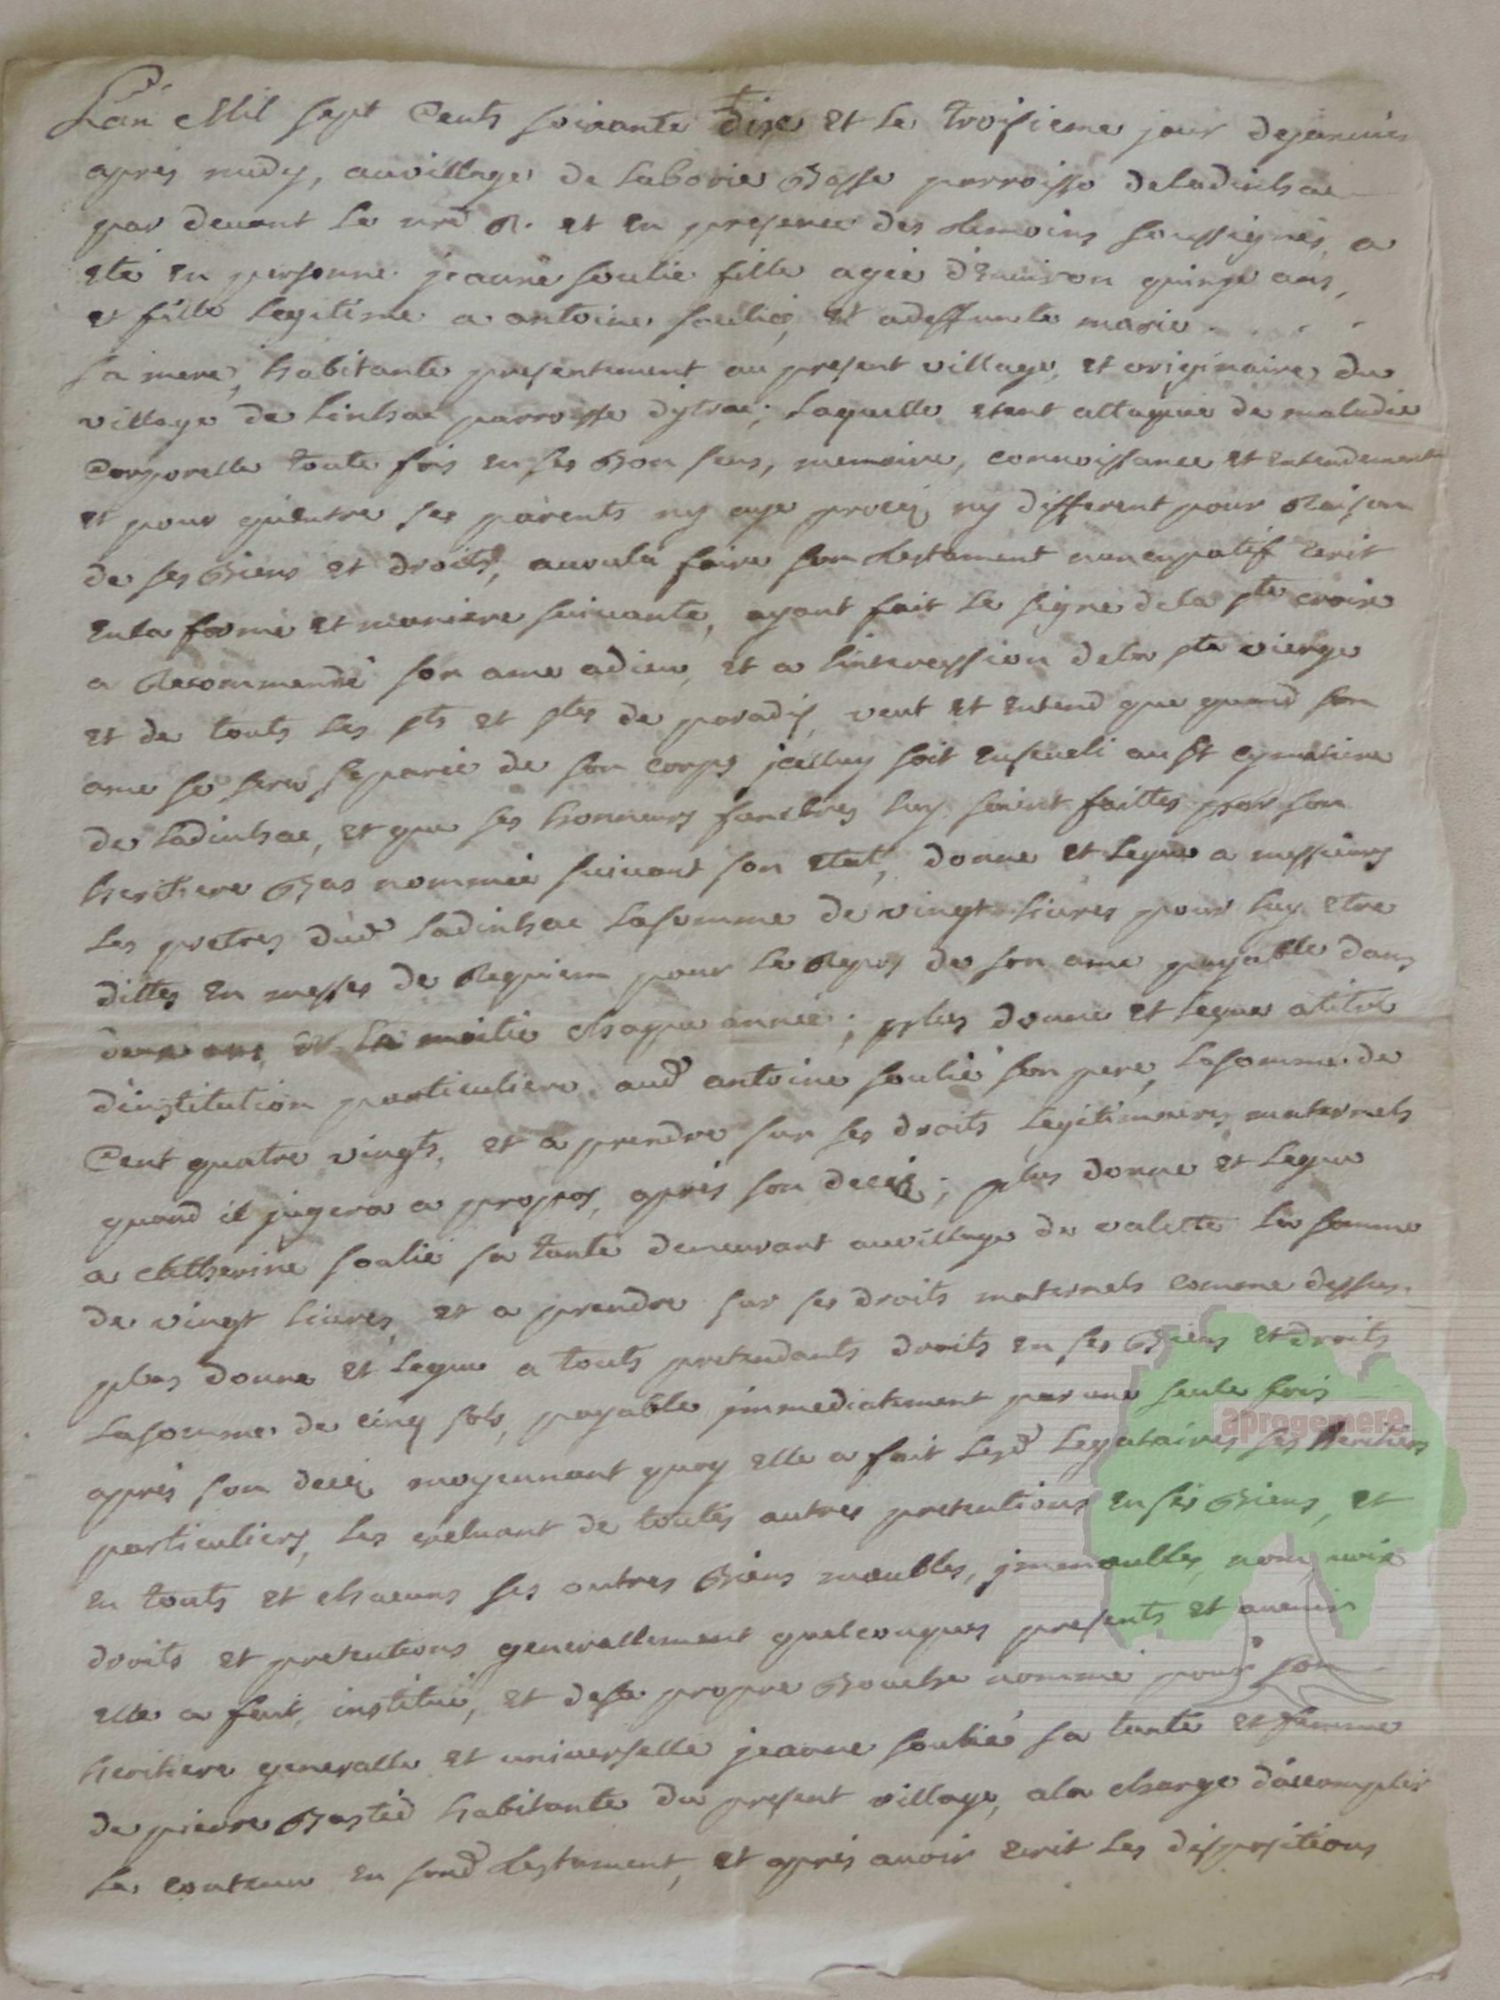 L'an Mil sept Cents soixante dix et le troisieme jour dejanvier
aprés midy, auvillage de Laborie Basse parroisse deladinhac
par devant le nre R. et en presence des temoins soussignés, a
eté en personne jeanne soulié fille agée d'environ quinze ans,
et fille legitime a antoine soulié, et adeffunte marie . . . .
sa mere, habitante presentement au present village, et originaire du
village de Linhac parroisse dytrac; laquelle etant attaquée de maladie
Corporelle toute fois en ses Bon sens, memoire, connoissance et entendement
et pour qu'entre ses parents ny aye procés ny different pour Raison
de ses Biens et droits, avoulu faire son testament noncupatif ecrit
enla forme et maniere suivante, ayant fait le signe dela ste croix
a Recommendé son ame adieu, et a l'intercession dela ste vierge
et de touts les sts et stes de paradis, veut et entend que quand son
ame se sera separée de son corps jcelluy soit enseveli au st cymetiere
de ladinhac, et que ses honneurs funebres luy soint faittes par son
heritiere Bas nommée suivant son etat, donne et legue a messieurs
les pretres dud ladinhac lasomme de vingt livres pour luy etre
dittes en messes de Requiem pour le Repos de son ame payable dans
deux ans et la moitié chaque année; plus donne et legue atitre
d'institution particuliere aud antoine soulié son pere, lasomme de
Cent quatre vingts, et a prendre sur ses droits legitimaires maternels
quand il jugera a propos, aprés son decés; plus donne et legue
a Catherine soulié sa tante demeurant auvillage de valette la somme
de vingt livres et a prendre sur ses droits maternels comme dessus.
plus donne et legue a touts pretendants droits en ses Biens et droits
lasomme de cinq sols, payable jmmediatement par une seule fois
aprés son decés moyennant quoy elle a fait lesd legataires ses heritiers
particuliers, les excluant de toutes autres pretentions en ses Biens, et
en touts et chacuns ses autres Biens meubles, jmmeubles, noms, voix
droits et pretentions generallement quelconques presents et avenir
elle a fait, institué, et desa propre Bouche nommé pour son
heritiere generalle et universelle jeanne soulié sa tante et femme
de pierre Bastid habitante du present village, ala charge d'accomplir
le contenu en sond testament, et aprés avoir ecrit les dispositions
aprogemere